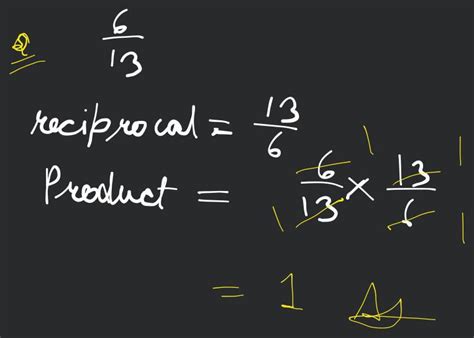 Q 6/13
reciprocal = 13/6
Product = 6/13 × 13/6
1 1 1 1
= 1 Ans